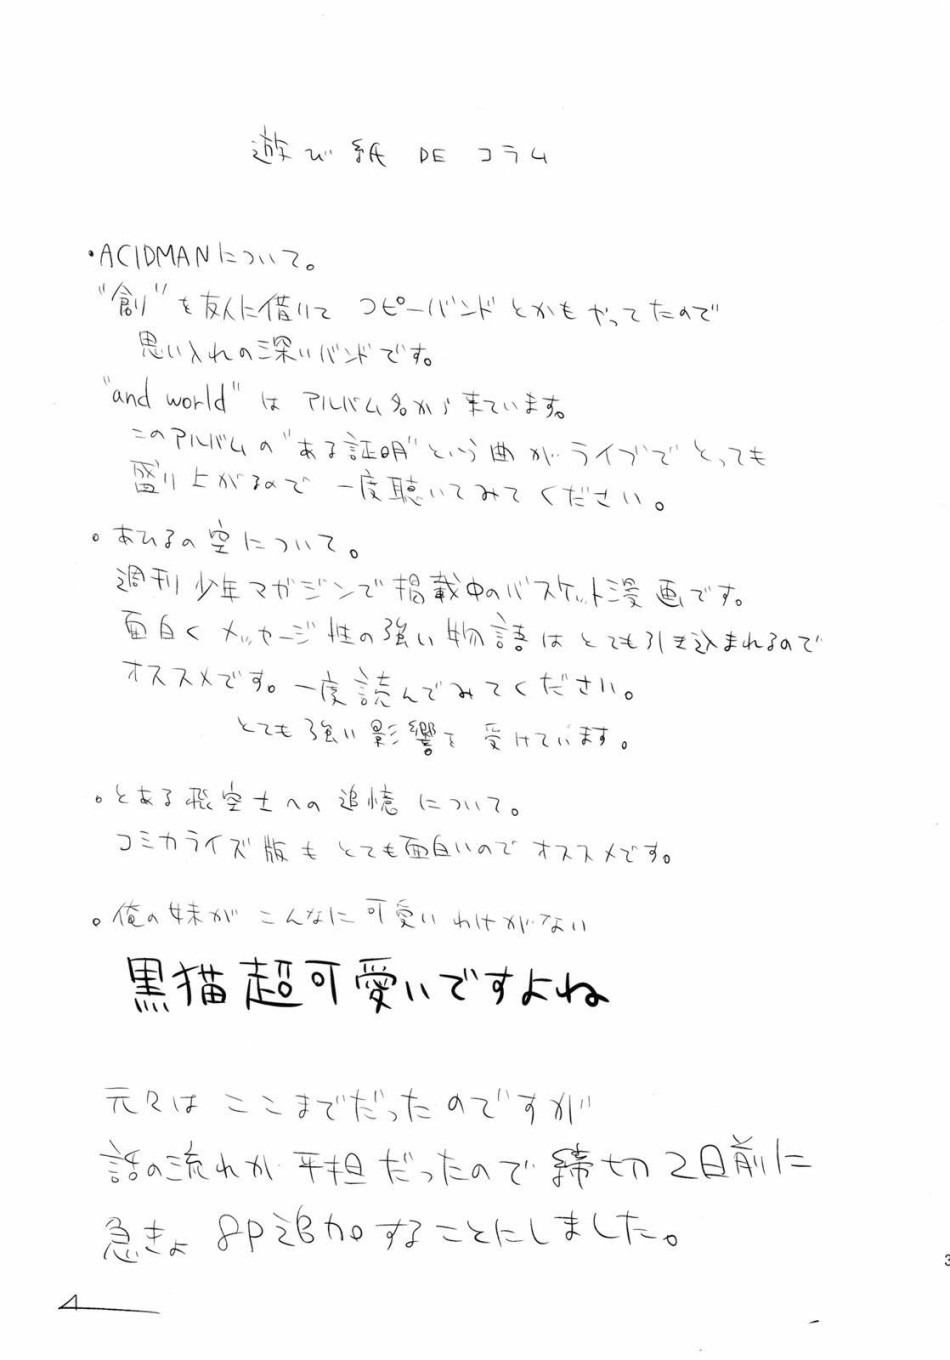 遊び紙 DE コラム
・ACIDMANについて。
"創"を友人に借りて コピーバンドとかもやってたので
思い入れの深いバンドです。
"and world" は アルバム名から来ています。
このアルバムの"ある証明"という曲がライブでとっても
盛り上がるので 一度聴いてみてください。
。あひるの空について。
週刊少年マガジンで掲載中のバスケット漫画です。
面白くメッセージ性の強い物語はとても引き込まれるので
オススメです。一度読んでみてください。
とても強い影響を受けています。
。とある飛空士への追憶について。
コミカライズ版もとても面白いのでオススメです。
。俺の妹がこんなに可愛いわけがない
黒猫超可愛いですよね
元々はここまでだったのですが
話の流れが平担だったので締切2日前に
急きょ8P追加することにしました。
3
4